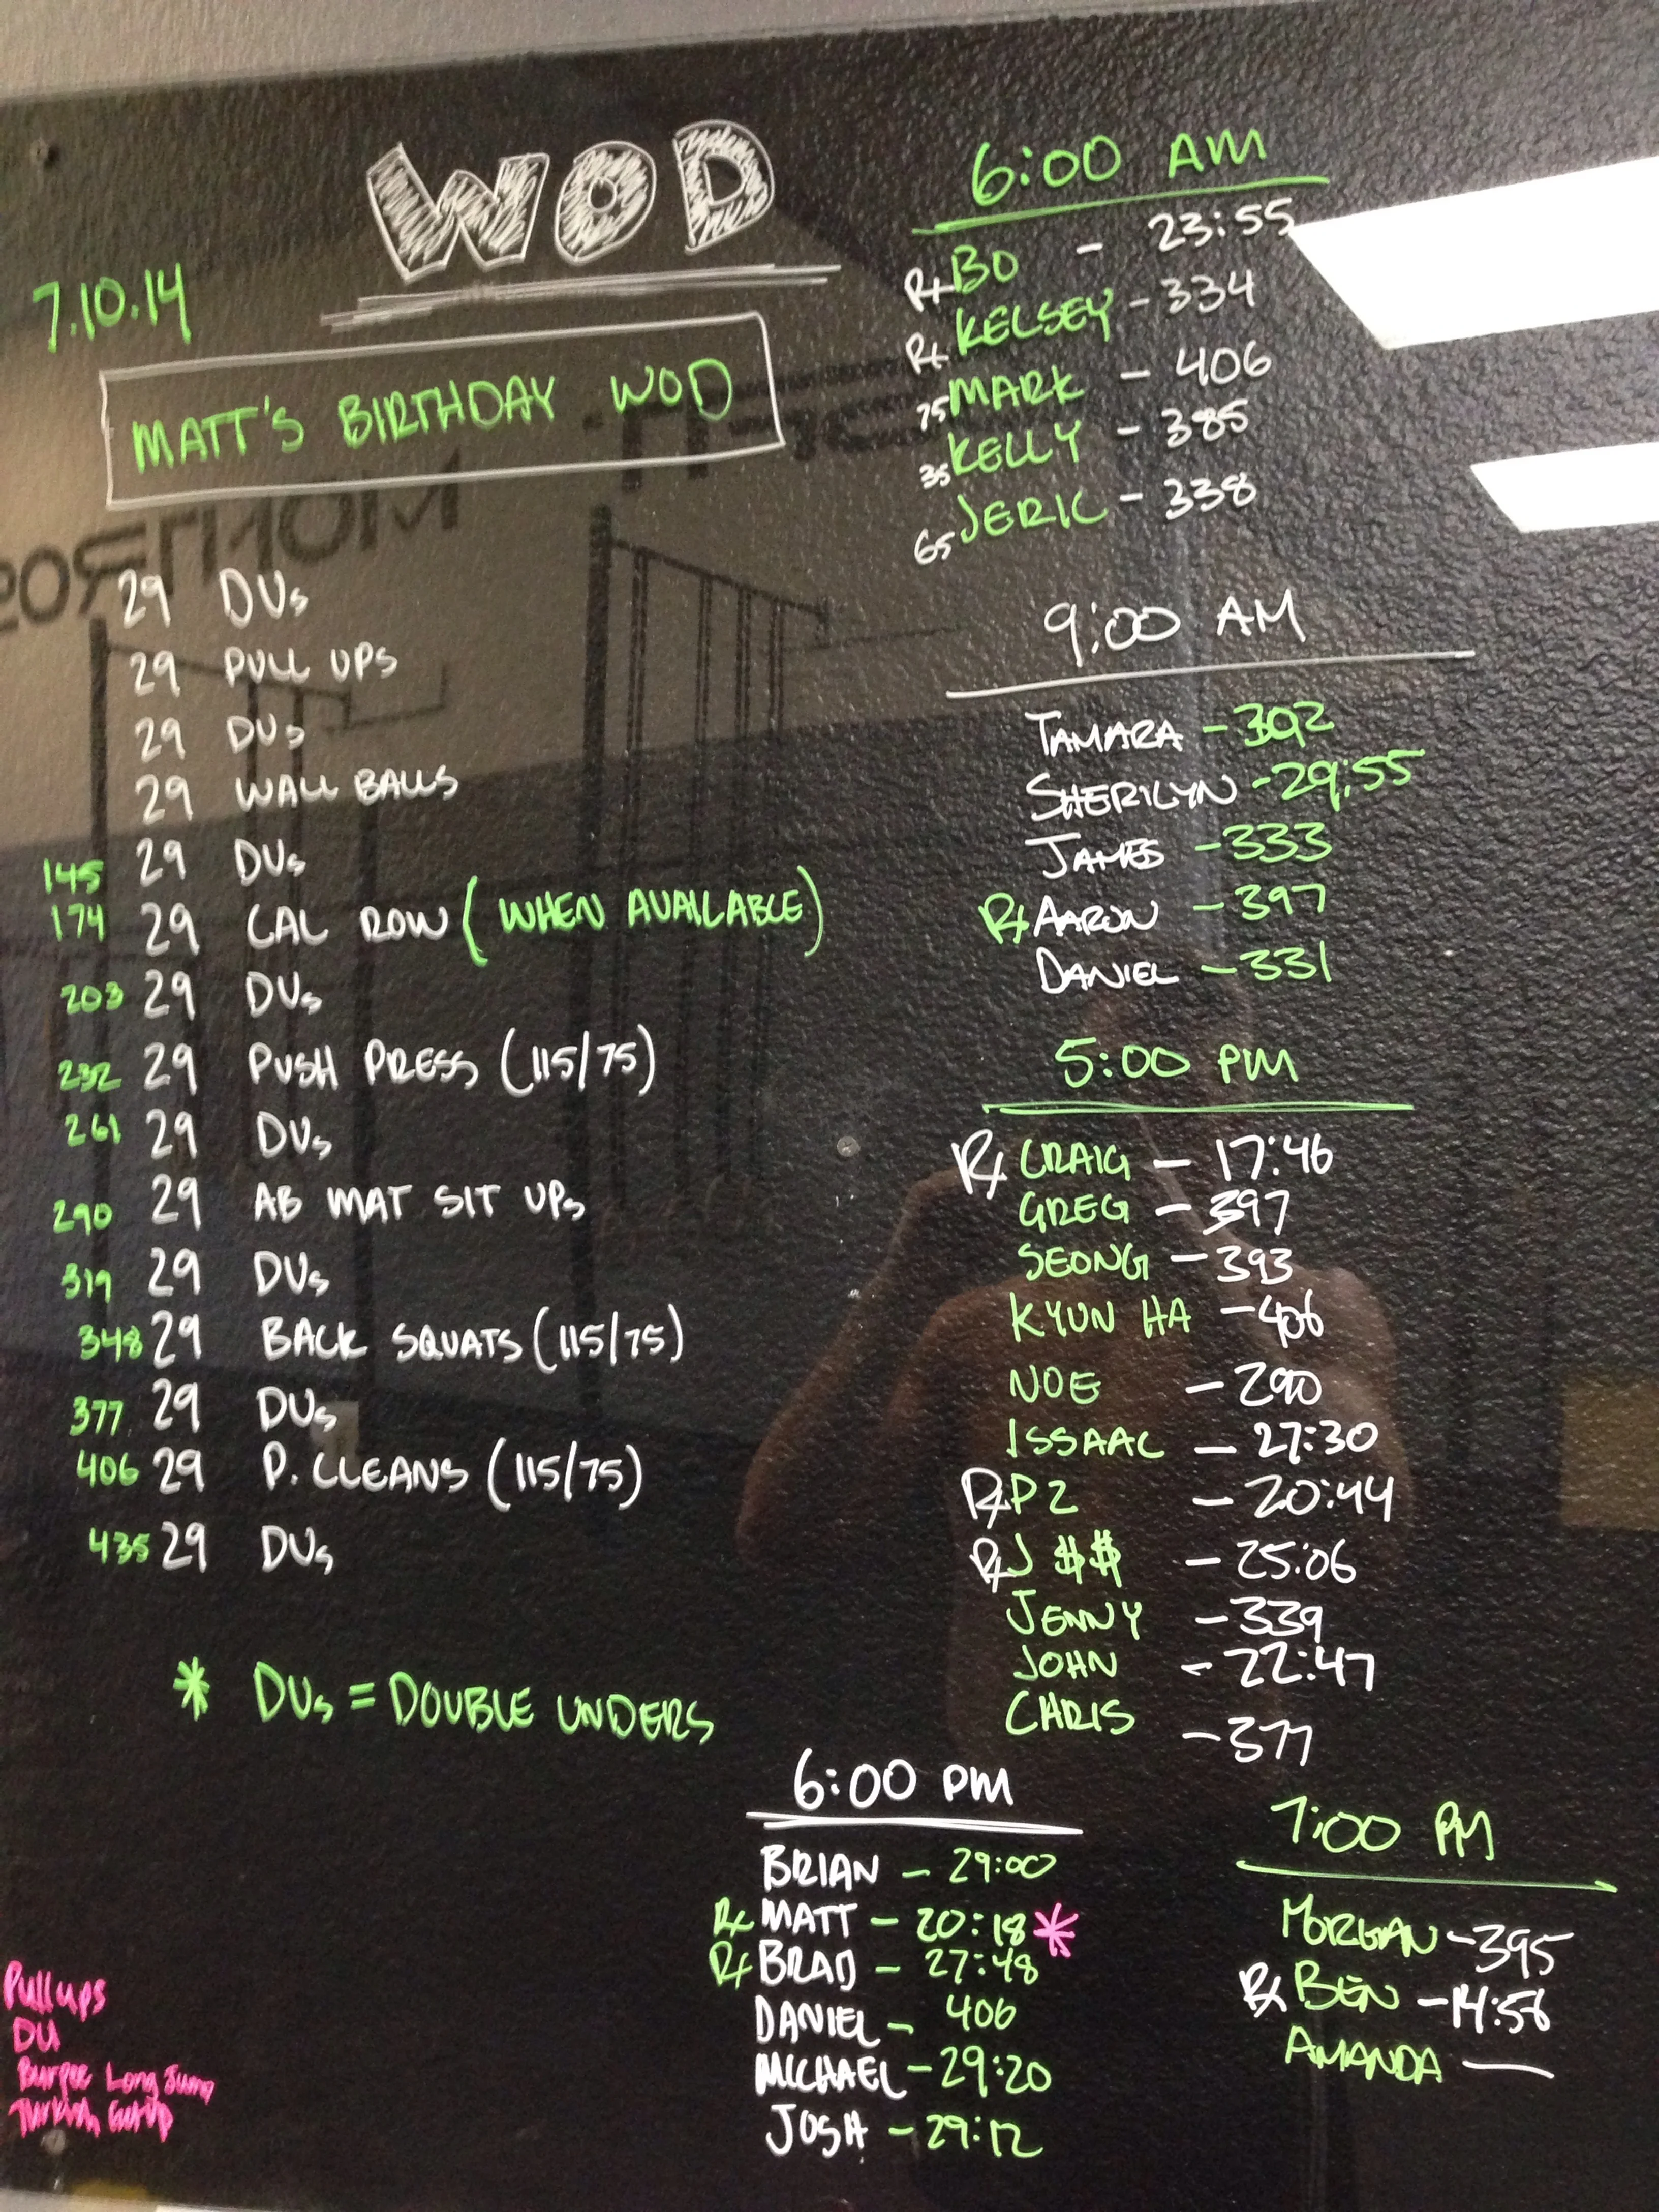 WOD
7.10.14
MATT'S BIRTHDAY WOD
29 DUs
29 PULL UPS
29 DUs
29 WALL BALLS
145 29 DUs
174 29 CAL ROW (WHEN AVAILABLE)
203 29 DUs
232 29 PUSH PRESS (115/75)
261 29 DUs
290 29 AB MAT SIT UPs
319 29 DUs
348 29 BACK SQUATS (115/75)
377 29 DUs
406 29 P. CLEANS (115/75)
435 29 DUs
* DUs = DOUBLE UNDERS
Pull ups
DU
Burpee Long Jump
Turkish Get Up
6:00 AM
Rx BO - 23:55
Rx KELSEY - 334
75 MARK - 406
35 KELLY - 385
65 JERIC - 338
9:00 AM
TAMARA - 392
SHERILYN - 29:55
JAMES - 333
Rx AARON - 397
DANIEL - 331
5:00 PM
Rx CRAIG - 17:46
GREG - 397
SEONG - 393
KYUN HA - 406
NOE - 290
ISSAAC - 27:30
Rx P2 - 20:44
Rx J $$ - 25:06
JENNY - 339
JOHN - 22:47
CHRIS - 377
6:00 PM
BRIAN - 29:00
Rx MATT - 20:18 *
Rx BRAD - 27:48
DANIEL - 406
MICHAEL - 29:20
JOSH - 29:12
7:00 PM
MORGAN - 395
Rx BEN - 14:56
AMANDA —